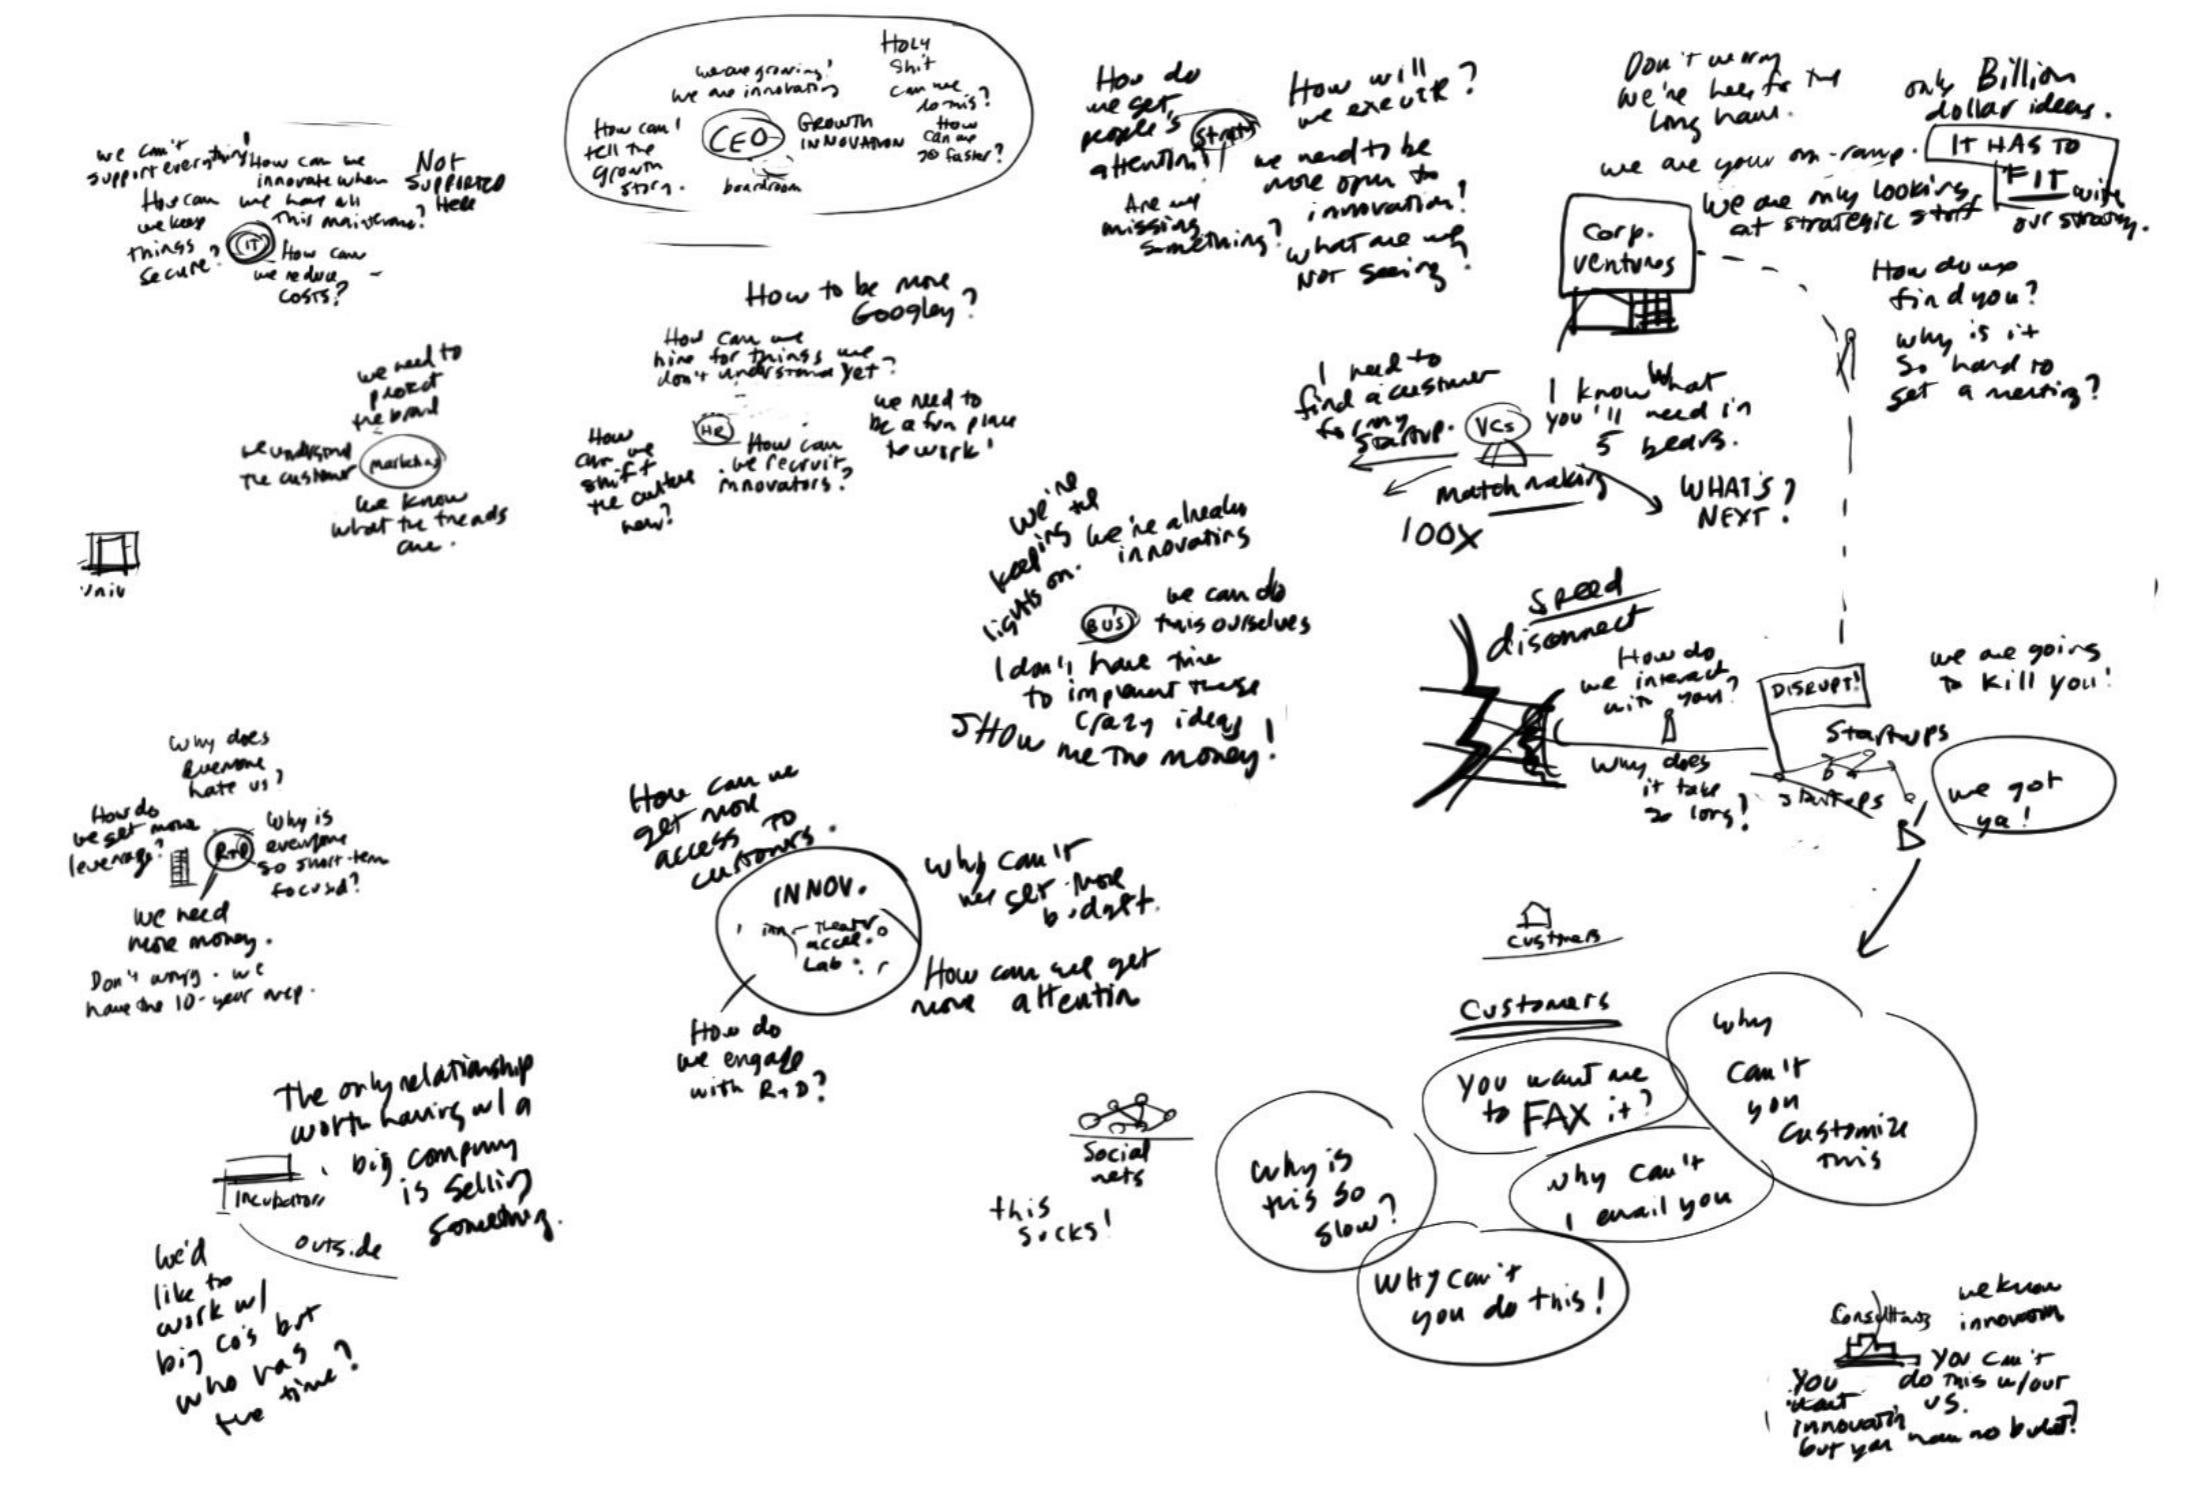 we can't
support everything!
How can we
innovate when
we have all
this maintenance?
Not
SUPPORTED
Here
How can
we keep
things
secure?
IT
How can
we reduce
costs?
we are growing!
we are innovating
Holy
Shit
can we
do this?
How
can we
go faster?
How can I
tell the
growth
story.
CEO
GROWTH
INNOVATION
boardroom
How do
we get
people's
attention!
Are we
missing
something?
How will
we execute?
we need to be
more open to
innovation!
what are we
Not seeing?
Don't worry
we're here for the
long haul.
we are your on-ramp.
only Billion
dollar ideas.
IT HAS TO
FIT with
our strategy.
We are only looking
at strategic stuff
Corp.
ventures
How do we
find you?
why is it
so hard to
get a meeting?
we need to
protect
the brand
we understand
the customer
marketing
we know
what the trends
are.
How to be more
Googley?
How can we
hire for things we
don't understand yet?
HR
we need to
be a fun place
to work!
How
can we
shift
the culture
now?
How can
we recruit
innovators?
I need to
find a customer
for my
startup.
VCs
I know what
you'll need in
5 years.
matchmaking
100X
WHAT'S
NEXT?
univ
we're
keeping the
lights on.
we're already
innovating
BU'S
we can do
this ourselves
I don't have time
to implement these
crazy ideas
SHOW me the money!
speed
disconnect
How do
we interact
with you?
why does
it take
so long?
DISRUPT!
we are going
to kill you!
Startups
startups
we got
ya!
why does
everyone
hate us?
How do
we get more
leverage?
R+D
why is
everyone
so short-term
focused?
we need
more money.
Don't worry. we
have the 10-year map.
How can we
get more
access to
customers.
INNOV.
accel.
Lab
why can't
we get more
budget.
How can we get
more attention
How do
we engage
with R+D?
customers
Customers
You want me
to FAX it?
why
can't
you
customize
this
why is
this so
slow?
why can't
I email you
WHY can't
you do this!
Social
nets
this
sucks!
The only relationship
worth having w/ a
big company
is selling
something.
Incubators
outside
we'd
like to
work w/
big co's but
who has
the time?
Consultants
we know
innovation
You can't
do this w/out
us.
You
want
innovation
but you have no budget?